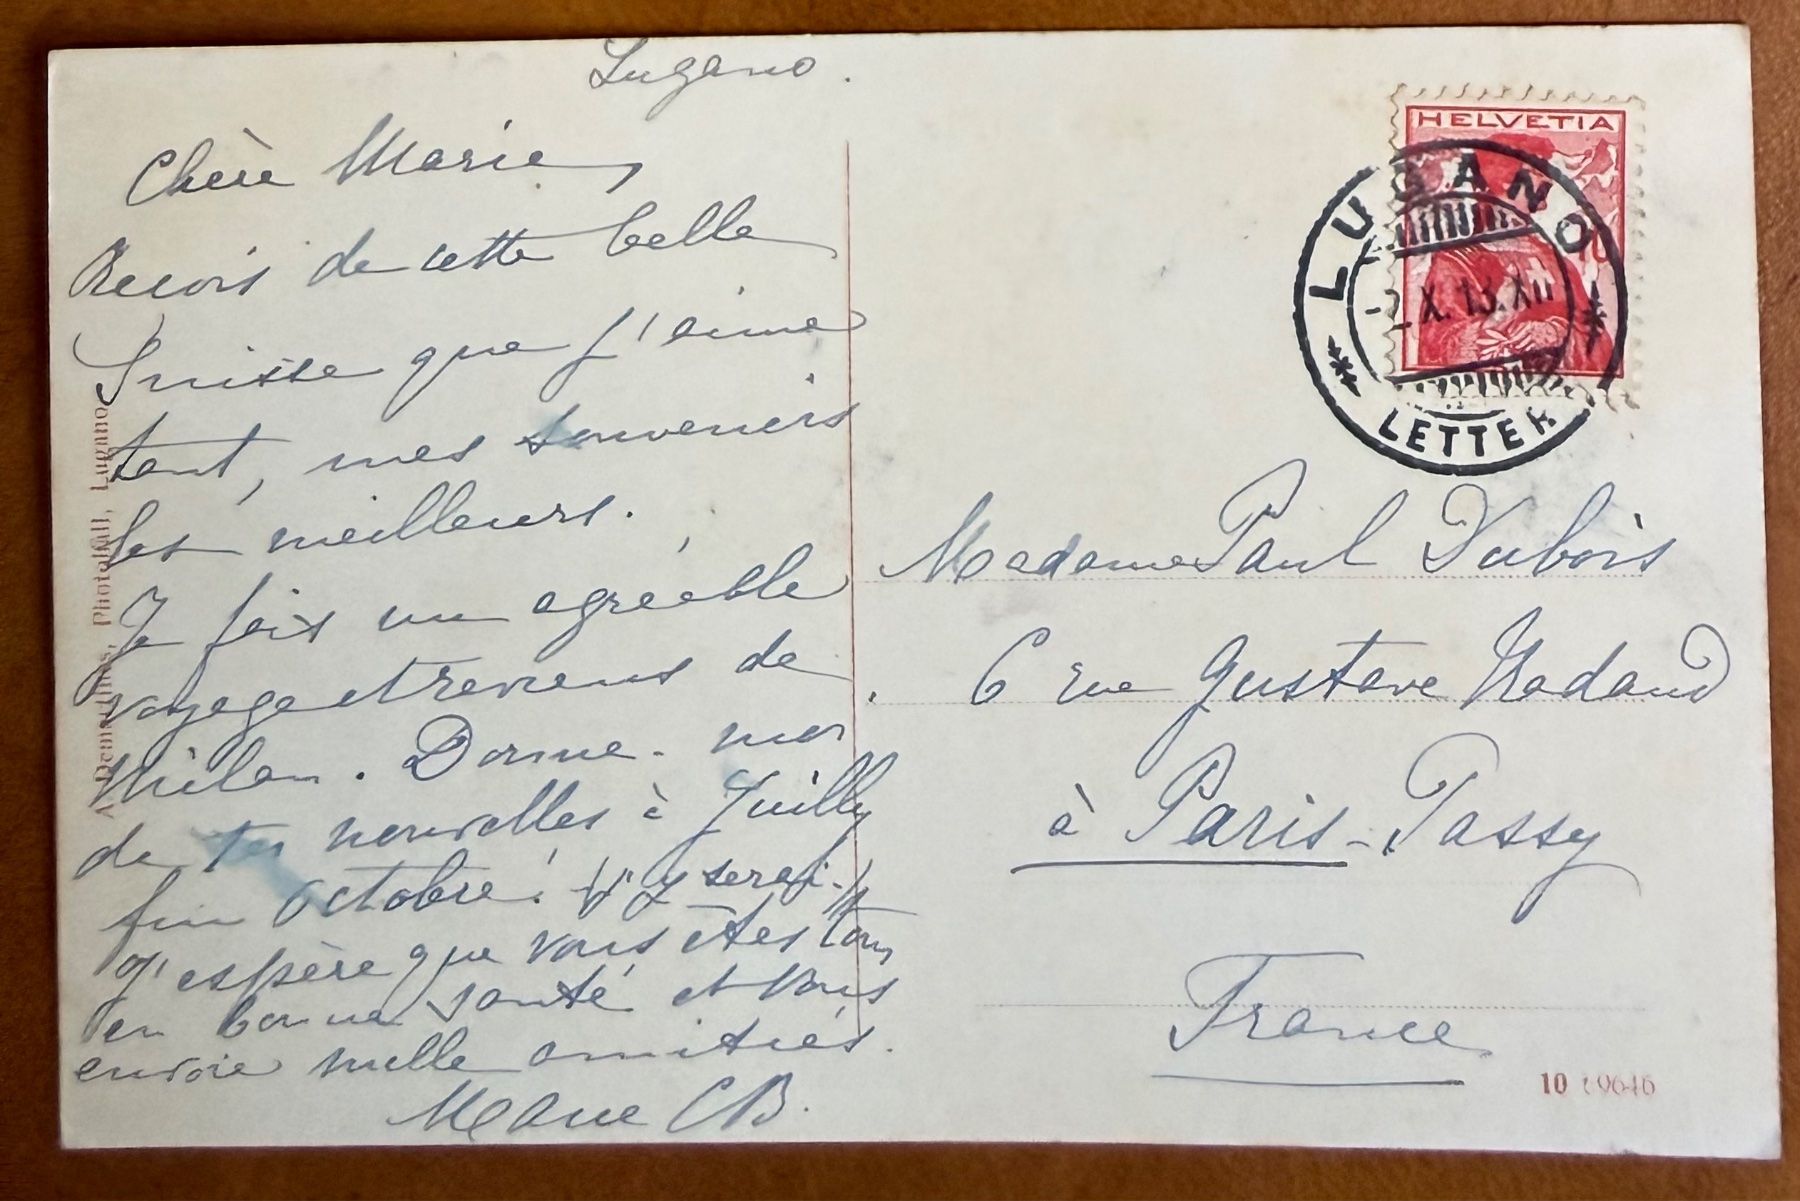 Lugano.
Chère Marie,
Recois de cette belle
Suisse que j'aime
tant, mes souvenirs
les meilleurs.
Je fais un agréable
voyage et reviens de
Milan. Donne-moi
de tes nouvelles à Juilly
fin octobre! (j'y serai.)
J'espère que vous êtes tous
en bonne santé et vous
envoie mille amitiés.
CB.
A. Demartinis, Lugano
HELVETIA
10
LUGANO
X.13.XII
LETTER
Madame Paul Dubois
6 rue Gustave Nadaud
à Paris-Passy
France
10